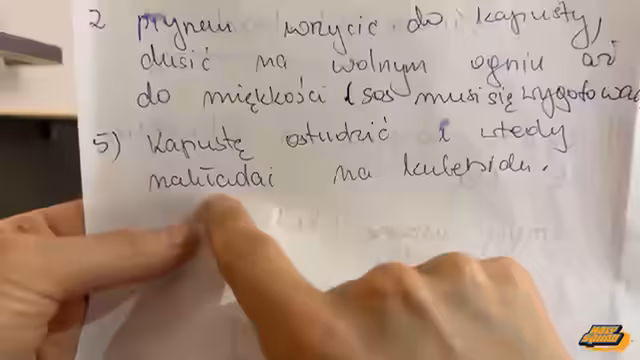 z płynem wrzucić do kapusty,
dusić na wolnym ogniu aż
do miękkości (sos musi się wygotować
5) Kapustę ostudzić i wtedy
nakładać na kulebiaku.